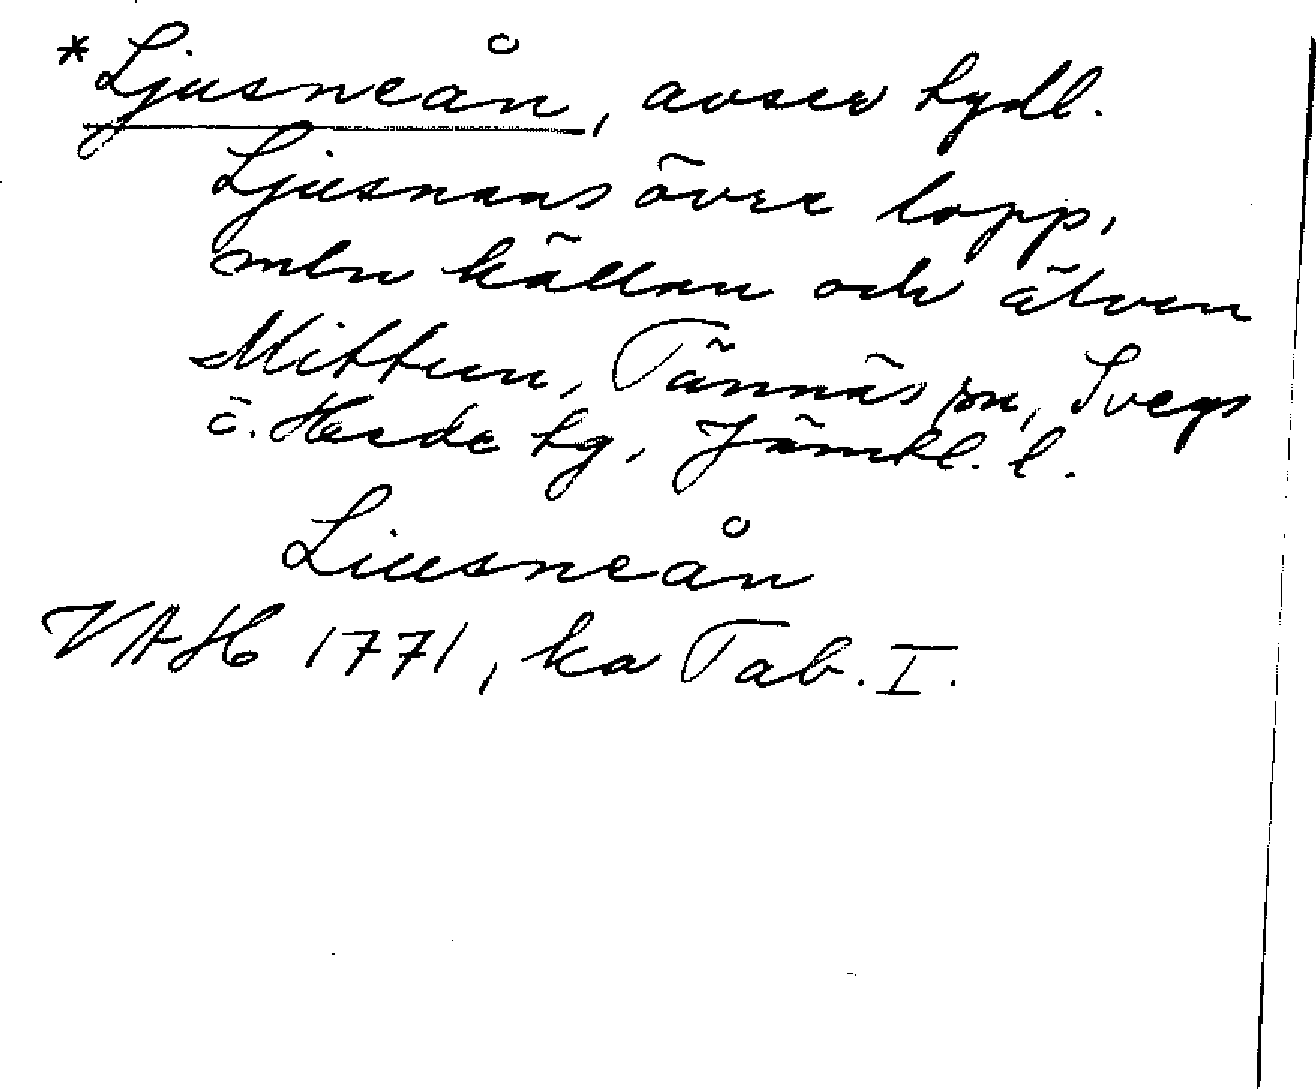 *Ljusneån, avser tydl.
Ljusnans övre lopp,
mln källan och älven
Mittun, Tännäs sn, Svegs
o. Hede tg, Jämtl. l.
Liusneån
VAH 1771, ka Tab. I.